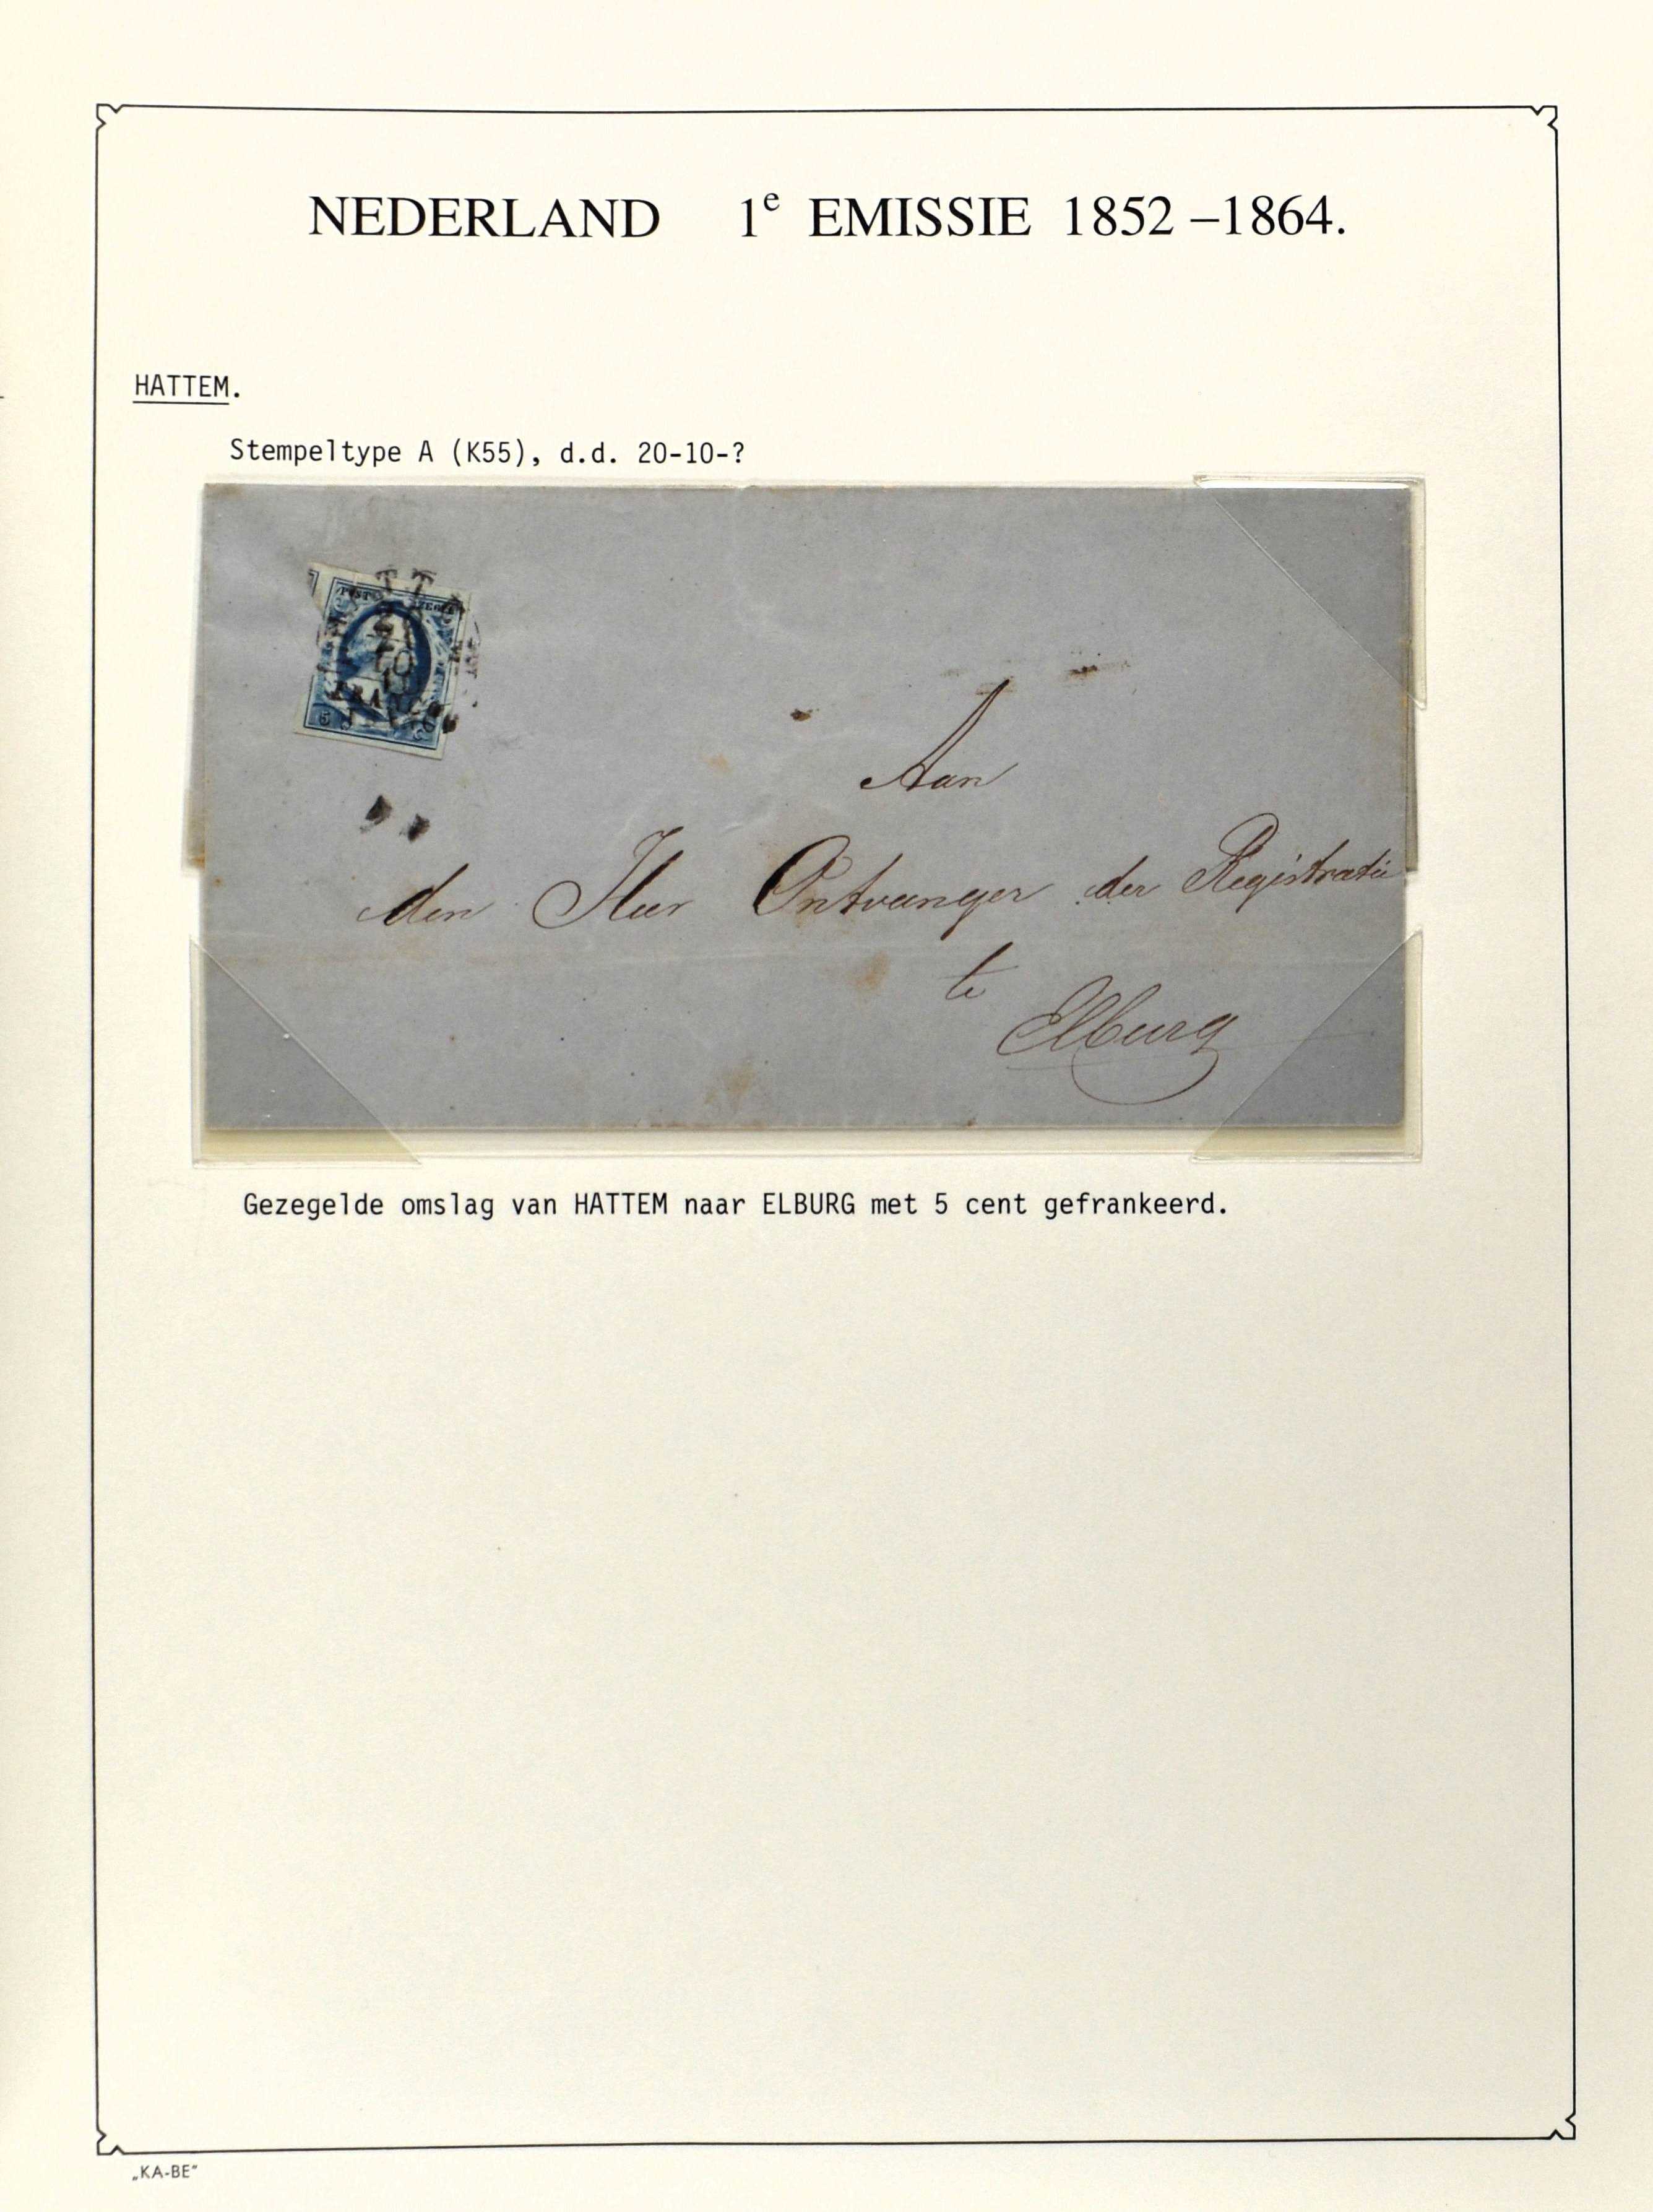 NEDERLAND 1e EMISSIE 1852 –1864.
HATTEM.
Stempeltype A (K55), d.d. 20-10-?
POST ZEGEL
5 C
Aan
den Heer Ontvanger der Registratie
te
Elburg
Gezegelde omslag van HATTEM naar ELBURG met 5 cent gefrankeerd.
„KA-BE“